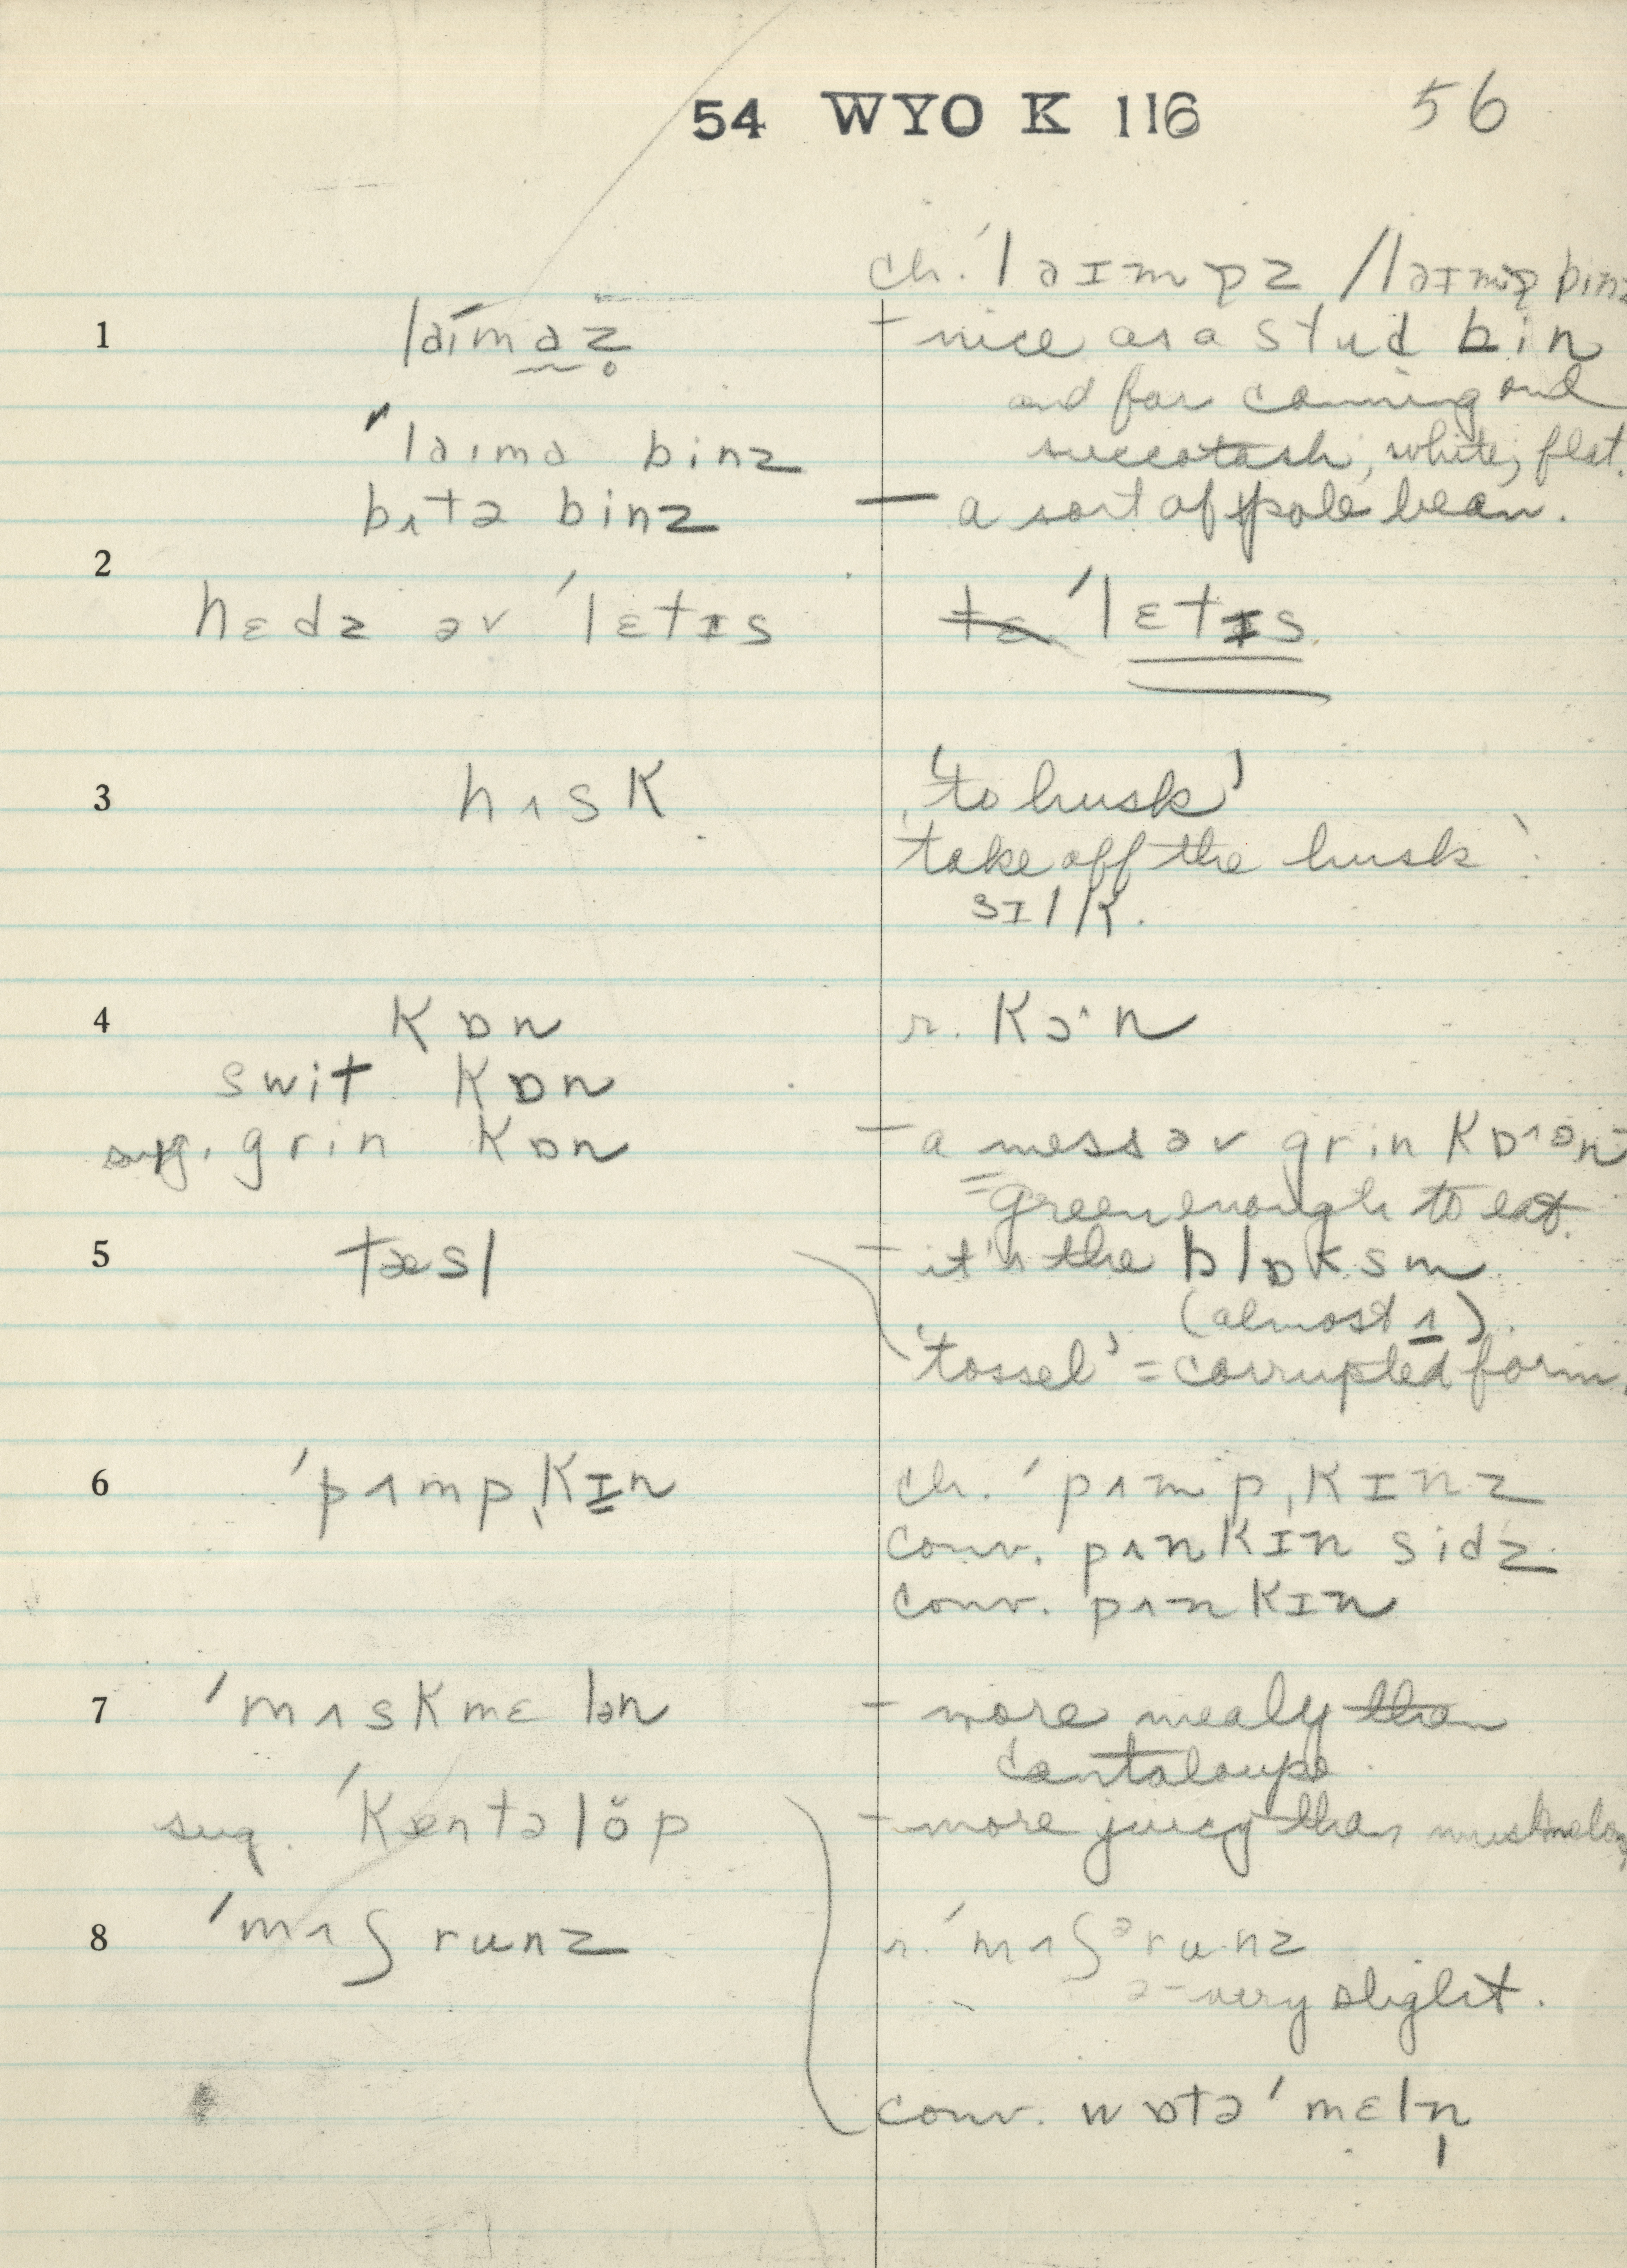 54 WYO K 116 56
ch. ˈlaɪməz / laɪmə binz
1 laɪməz̥ – nice as a stud bin
and for canning and
ˈlaɪmə binz succotash, white, flat.
bʌtə binz – a sort of pole bean.
2
hɛdz əv ˈlɛtɪs ˈlɛtɪs
3 hʌsk 'to husk'
'take off the husk'
sɪlk.
4 kɒn r. kɔˑn
swit kɒn
sug. grin kɒn – a mess əv grin kɒˑən –
= green enough to eat.
5 tæsl – it's the blɒksm
(almost ʌ).
'tossel' = corrupted form.
6 ˈpʌmpˌkɪn ch. ˈpʌmpˌkɪnz
conv. pʌnkɪn sidz
conv. pʌnkɪn
7 ˈmʌskmɛlən – more mealy than
cantaloupe
sug. ˈkæntəlŏp – more juicy than muskmelon
8 ˈmʌʃrunz r. ˈmʌʃᵊrunz
ə – very slight.
conv. wɒtəˈmɛln̩